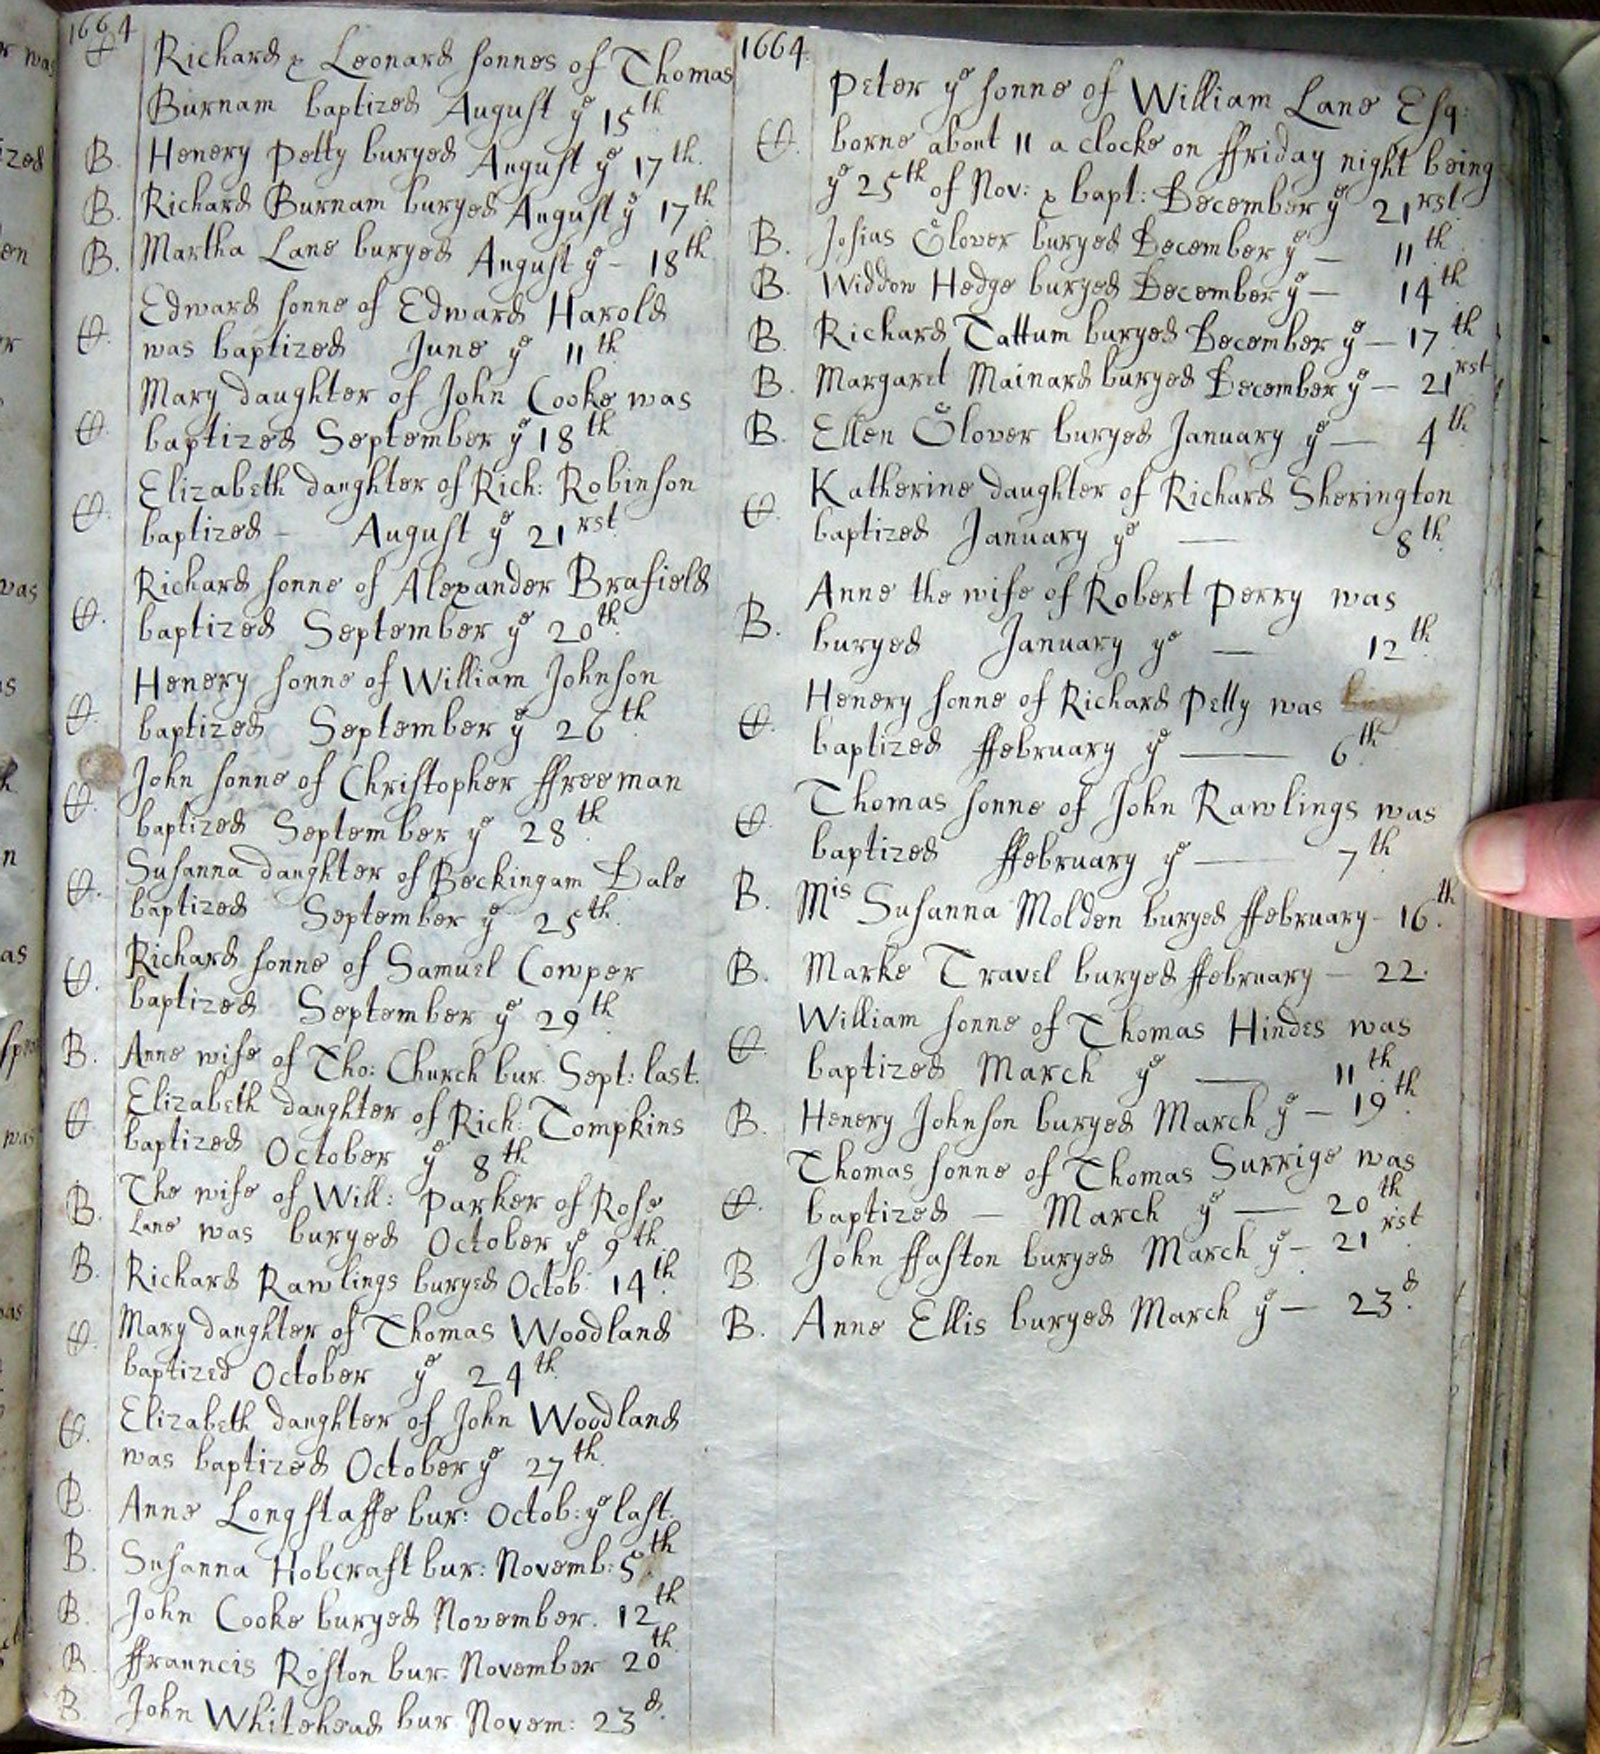 1664
Richard & Leonard sonnes of Thomas
Burnam baptized August yͤ 15th
B. Henery Petty buryed August yͤ 17th.
B. Richard Burnam buryed August yͤ 17th
B. Martha Lane buryed August yͤ - 18th
Edward sonne of Edward Harold
was baptized June yͤ 11th
Mary daughter of John Cooke was
baptized September yͤ 18th
Elizabeth daughter of Rich: Robinson
baptized - August yͤ 21rst
Richard sonne of Alexander Brafield
baptized September yͤ 20th.
Henery sonne of William Johnson
baptized September yͤ 26th
John sonne of Christopher ffreeman
baptized September yͤ 28th
Susanna daughter of Beckingam Dale
baptized September yͤ 25th.
Richard sonne of Samuel Cowper
baptized September yͤ 29th
B. Anne wife of Tho: Church bur. Sept: last.
Elizabeth daughter of Rich: Tompkins
baptized October yͤ 8th
B. The wife of Will: Parker of Rose
Lane was buryed October yͤ 9th
B. Richard Rawlings buryed Octob: 14th
Mary daughter of Thomas Woodland
baptized October yͤ 24th.
Elizabeth daughter of John Woodland
was baptized October yͤ 27th.
B. Anne Longstaffe bur: Octob: yͤ last.
B. Susanna Hobcraft bur: Novemb: 5th
B. John Cooke buryed November. 12th
B. ffranncis Roston bur: November 20th
B. John Whitehead bur Novem: 23d.
1664.
Peter yͤ sonne of William Lane Esq:
borne about 11 a clocke on ffriday night being
yͤ 25th of Nov: & bapt: December yͤ 21rst
B. Josias Glover buryed December yͤ — 11th
B. Widdow Hedge buryed December yͤ — 14th
B. Richard Tattum buryed December yͤ — 17th
B. Margaret Mainard buryed December yͤ — 21rst
B. Ellen Glover buryed January yͤ — 4th
Katherine daughter of Richard Sherington
baptized January yͤ — 8th.
Anne the wife of Robert Perry was
B. buryed January yͤ — 12th
Henery sonne of Richard Petty was
baptized ffebruary yͤ — 6th
Thomas sonne of John Rawlings was
baptized ffebruary yͤ — 7th
B. Mis Susanna Molden buryed ffebruary - 16th.
B. Marke Travel buryed ffebruary — 22.
William sonne of Thomas Hindes was
baptized March yͤ — 11th
B. Henery Johnson buryed March yͤ — 19th.
Thomas sonne of Thomas Surrige was
baptized — March yͤ — 20th
B. John ffaston buryed March yͤ — 21rst.
B. Anne Ellis buryed March yͤ — 23d.